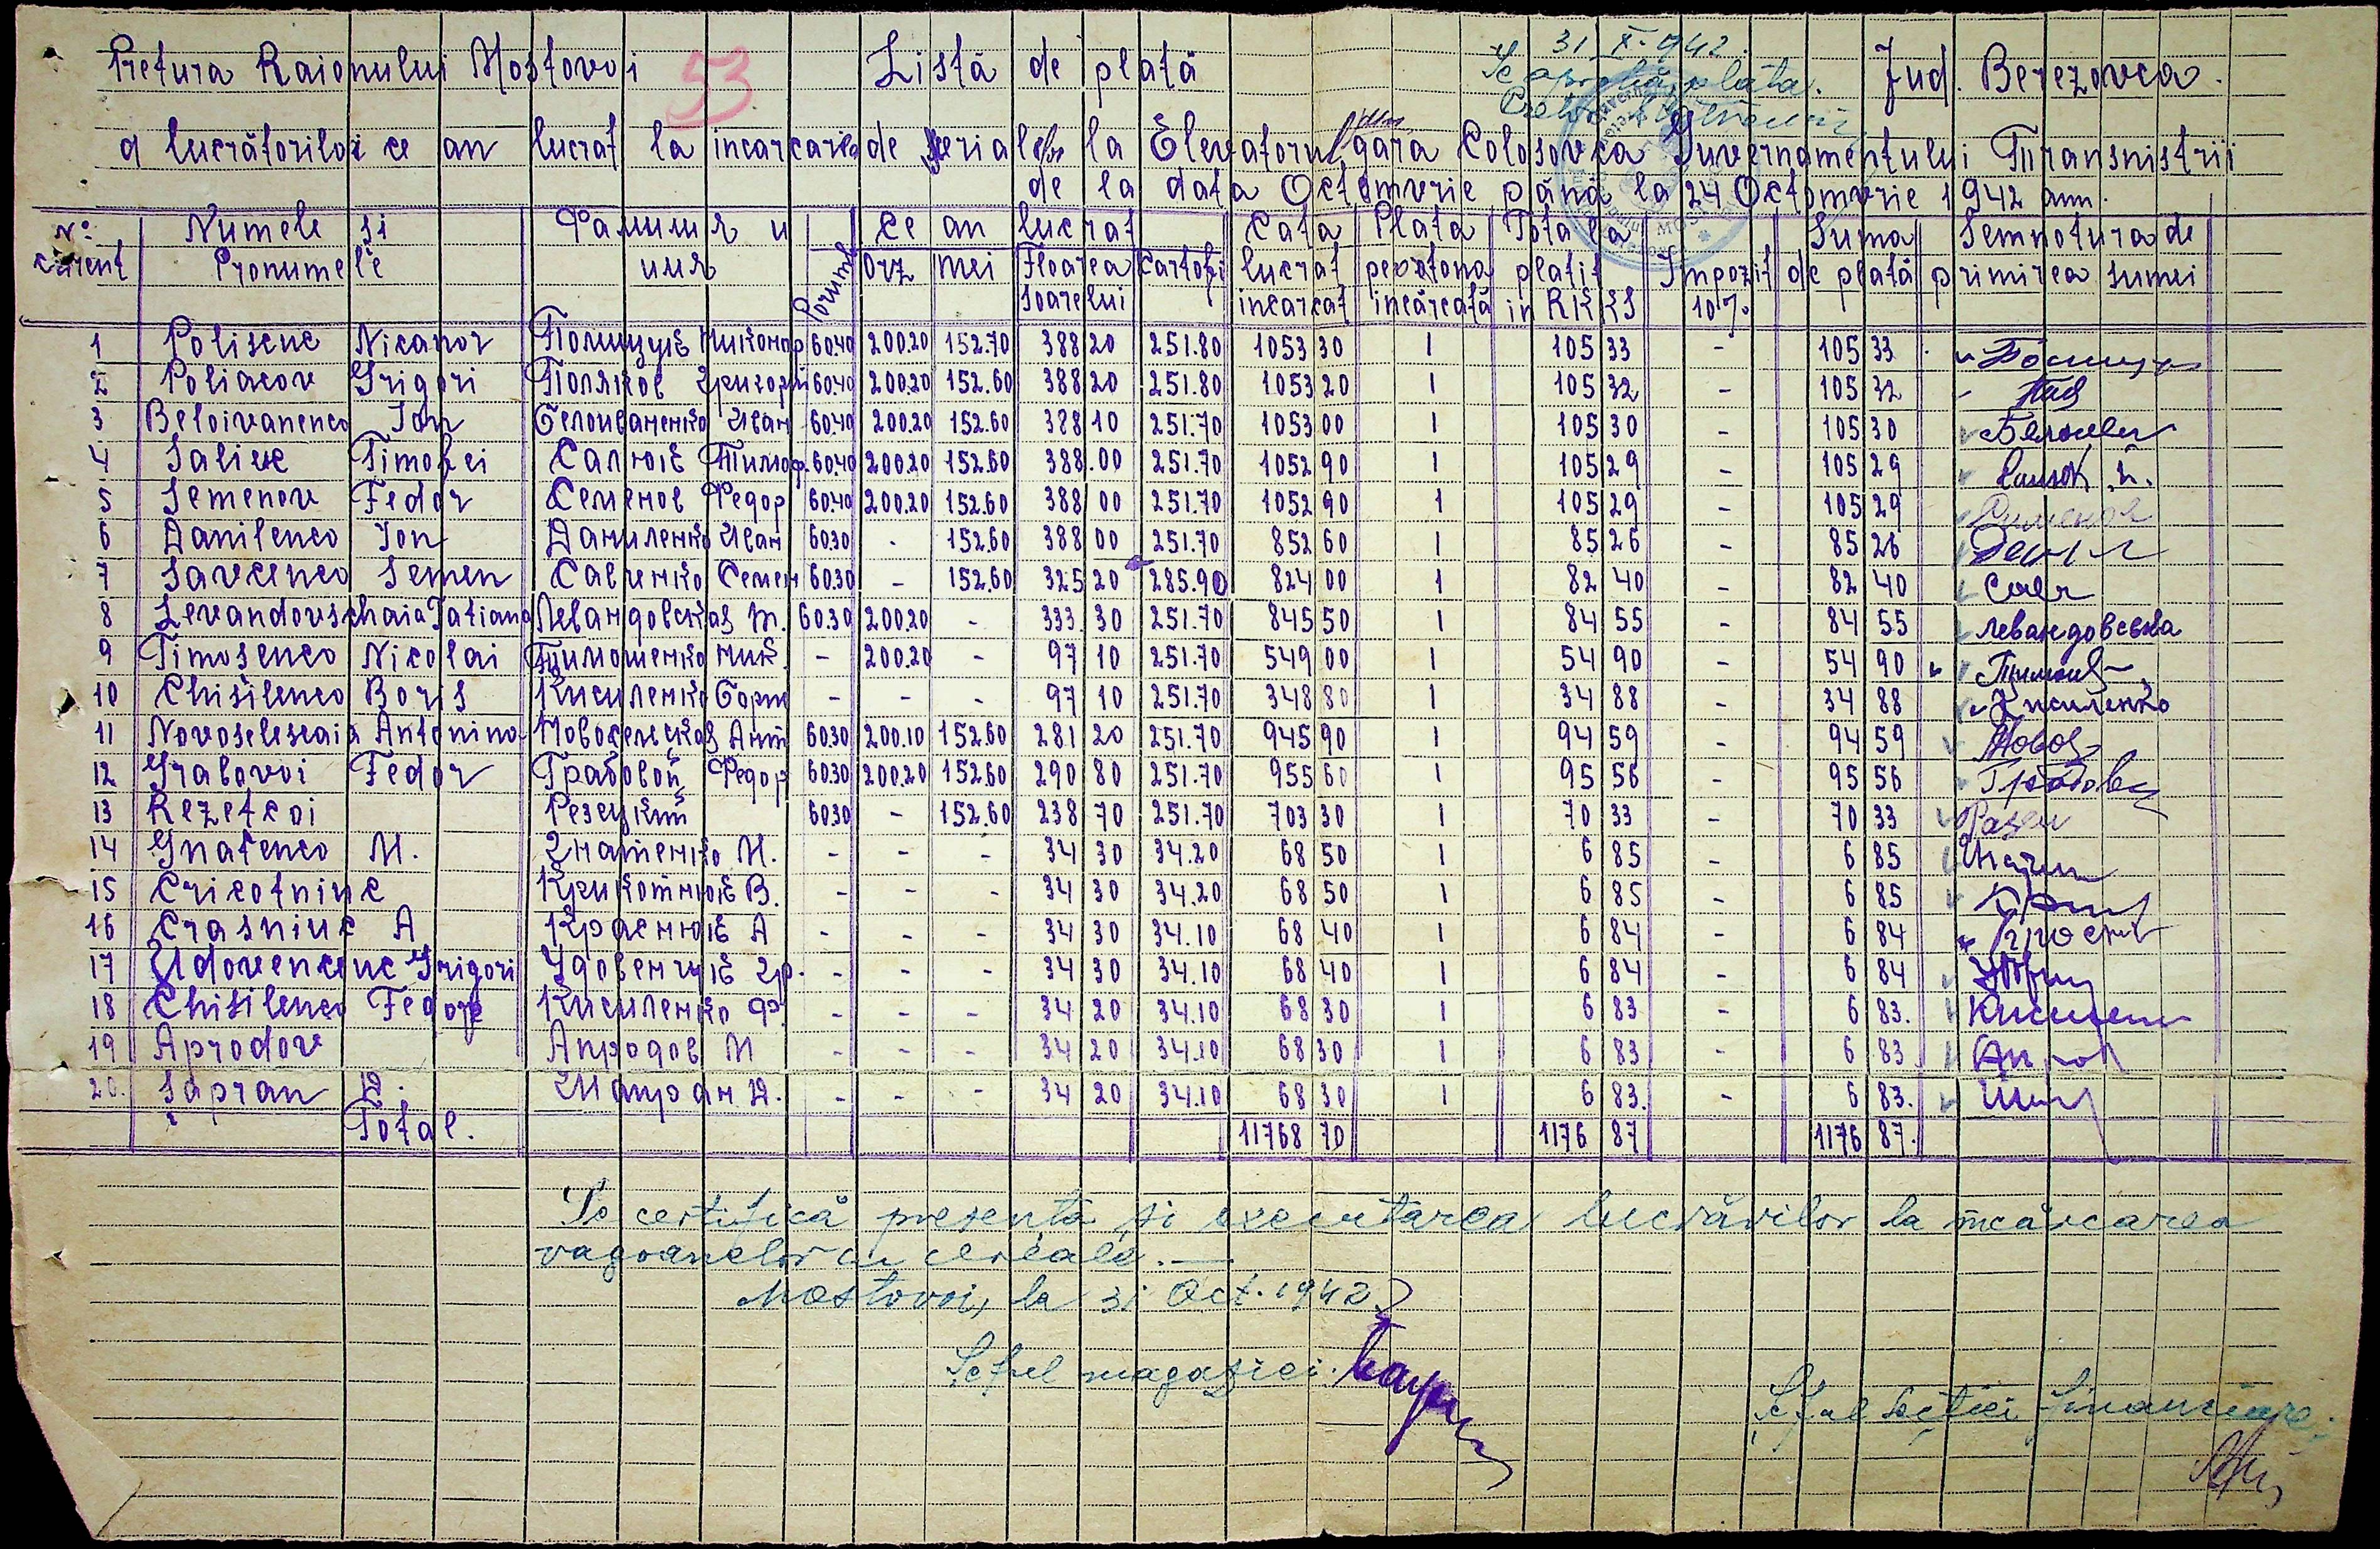 Pretura Raionului Mostovoi 53 Listă de plată 31 X. 942 Jud. Berezovca.
Se aprobă plata.
a lucrătorilor ce an lucrat la incarcarile de la Elevatorul gara Colosovca Guvernamentului Transnistrii
de la data Octomvrie până la 24 Octomvrie 1942 ann.
No: curent Numele si Pronumele Фамилия и имя Porumb ce an lucrat Orz Mei Floarea soarelui Cartofi Cata lucrat incarcat Plata pe tona incărcată Totala platit in RKKS Impozit 10% Suma de plată Semnotura de primirea sumei
1 Polisciuc Nicanor Полищук Никонор 60.40 200.20 152.70 388 20 251.80 1053 30 1 105 33 - 105 33
2 Poliacov Grigori Поляков Григорий 60.40 200.20 152.60 388 20 251.80 1053 20 1 105 32 - 105 32
3 Beloivanenco Ion Белоиваненко Иван 60.40 200.20 152.60 388 10 251.70 1053 00 1 105 30 - 105 30
4 Saliuc Timofei Салюк Тимоф. 60.40 200.20 152.60 388.00 251.70 1052 90 1 105 29 - 105 29
5 Semenov Fedor Семенов Федор 60.40 200.20 152.60 388 00 251.70 1052 90 1 105 29 - 105 29
6 Danilenco Ion Даниленко Иван 60.30 - 152.60 388 00 251.70 852 60 1 85 26 - 85 26
7 Savcenco Semen Савченко Семен 60.30 - 152.60 325 20 285.90 824 00 1 82 40 - 82 40 Савч
8 Levandovschaia Tatiana Левандовская Т. 60.30 200.20 - 333.30 251.70 845 50 1 84 55 - 84 55 Левандовська
9 Timosenco Nicolai Тимошенко Ник. - 200.20 - 97 10 251.70 549 00 1 54 90 - 54 90
10 Chisilenco Boris Кисиленко Борис - - - 97 10 251.70 348 80 1 34 88 - 34 88 Кисиленко
11 Novoselscaia Antonina Новосельская Ант 60.30 200.10 152.60 281 20 251.70 945 90 1 94 59 - 94 59
12 Grabovoi Fedor Грабовой Федор 60.30 200.20 152.60 290 80 251.70 955 60 1 95 56 - 95 56
13 Rezetcoi Резецкий 60.30 - 152.60 238 70 251.70 703 30 1 70 33 - 70 33
14 Gnatenco M. Гнатенко М. - - - 34 30 34.20 68 50 1 6 85 - 6 85
15 Cricotniuc Крикотнюк В. - - - 34 30 34.20 68 50 1 6 85 - 6 85
16 Crasniuc A Краснюк А - - - 34 30 34.10 68 40 1 6 84 - 6 84
17 Udovenciuc Grigori Удовенчук Гр. - - - 34 30 34.10 68 40 1 6 84 - 6 84
18 Chisilenco Fedor Кисиленко Ф. - - - 34 20 34.10 68 30 1 6 83 - 6 83.
19 Aprodov Апродов М - - - 34 20 34.10 68 30 1 6 83 - 6 83
20. Sapran D. Шапран Д. - - - 34 20 34.10 68 30 1 6 83. - 6 83.
Total. 11768 70 1176 87 1176 87.
Se certifică presența și executarea lucrărilor la încărcarea
vagoanelor cu cereale. —
Mostovoi, la 31 Oct. 1942
Șeful magaziei.
Șeful Secției financiare.